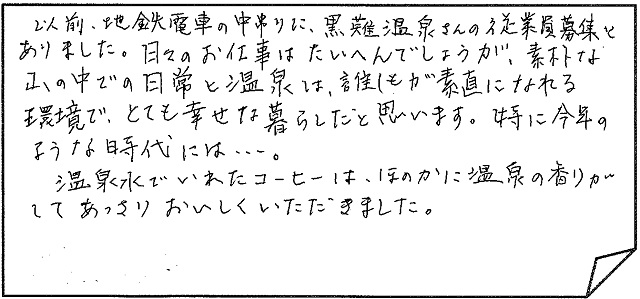 以前、地鉄電車の中吊りに、黒薙温泉さんの従業員募集と
ありました。日々のお仕事はたいへんでしょうが、素朴な
山の中での日常と温泉は、誰しもが素直になれる
環境で、とても幸せな暮らしだと思います。特に今年の
ような時代には…。
温泉水でいれたコーヒーは、ほのかに温泉の香りが
してあっさりおいしくいただきました。